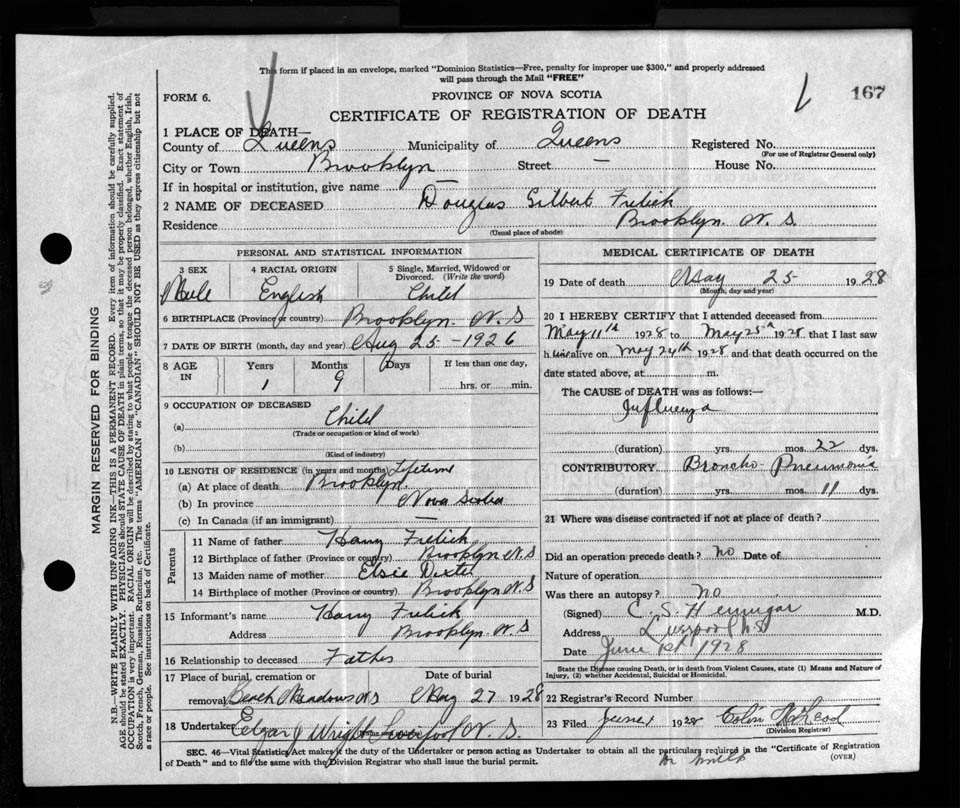 This form if placed in an envelope, marked "Dominion Statistics—Free, penalty for improper use $300," and properly addressed
will pass through the Mail "FREE"
FORM 6.
PROVINCE OF NOVA SCOTIA
167
CERTIFICATE OF REGISTRATION OF DEATH
1 PLACE OF DEATH—
County of Queens Municipality of Queens Registered No.
(For use of Registrar General only)
City or Town Brooklyn Street — House No.
If in hospital or institution, give name —
2 NAME OF DECEASED Douglas Gilbert Frelick
Residence Brooklyn. N. S.
(Usual place of abode)
PERSONAL AND STATISTICAL INFORMATION
3 SEX Male
4 RACIAL ORIGIN English
5 Single, Married, Widowed or Divorced. (Write the word) Child
6 BIRTHPLACE (Province or country) Brooklyn. N. S
7 DATE OF BIRTH (month, day and year) Aug 25 - 1926
8 AGE IN Years 1 Months 9 Days If less than one day, hrs. or min.
9 OCCUPATION OF DECEASED
(a) Child
(Trade or occupation or kind of work)
(b)
(Kind of industry)
10 LENGTH OF RESIDENCE (in years and months) Lifetime
(a) At place of death Brooklyn.
(b) In province Nova Scotia
(c) In Canada (if an immigrant) —
Parents
11 Name of father Harry Frelick
12 Birthplace of father (Province or country) Brooklyn N. S
13 Maiden name of mother Elsie Dexter
14 Birthplace of mother (Province or country) Brooklyn N. S
15 Informant's name Harry Frelick
Address Brooklyn. N. S
16 Relationship to deceased Father
17 Place of burial, cremation or
removal Beach Meadows N S May 27 1928
18 Undertaker Edgar J Wright Liverpool N. S.
MEDICAL CERTIFICATE OF DEATH
19 Date of death May 25 1928
(Month, day and year)
20 I HEREBY CERTIFY that I attended deceased from
May 11th 1928 to May 25th 1928 that I last saw
h im alive on May 24th 1928 and that death occurred on the
date stated above, at m.
The CAUSE of DEATH was as follows:—
Influenza
(duration) yrs. mos. 22 dys.
CONTRIBUTORY Broncho-Pneumonia
(duration) yrs. mos. 11 dys.
21 Where was disease contracted if not at place of death?
Did an operation precede death? no Date of
Nature of operation
Was there an autopsy? no
(Signed) C. S. Hennigar M.D.
Address Liverpool NS
Date June 1st 1928
State the Disease causing Death, or in death from Violent Causes, state (1) Means and Nature of
Injury, (2) whether Accidental, Suicidal or Homicidal.
22 Registrar's Record Number
23 Filed June 1 1928 Colin McLeod
(Division Registrar)
SEC. 46—Vital Statistics Act makes it the duty of the Undertaker or person acting as Undertaker to obtain all the particulars required in the "Certificate of Registration
of Death" and to file the same with the Division Registrar who shall issue the burial permit.
(OVER)
MARGIN RESERVED FOR BINDING
N.B.—WRITE PLAINLY WITH UNFADING INK—THIS IS A PERMANENT RECORD. Every item of information should be carefully supplied.
AGE should be stated EXACTLY. PHYSICIANS should STATE CAUSE OF DEATH in plain terms, so that it may be properly classified. Exact statement of
OCCUPATION is very important. RACIAL ORIGIN will be described by stating to what people or tongue the deceased person belonged, whether English, Irish,
Scotch, French, German, Russian, Ruthenian, etc. The terms "AMERICAN" or "CANADIAN" SHOULD NOT BE USED as they express citizenship but not
a race or people. See instructions on back of Certificate.